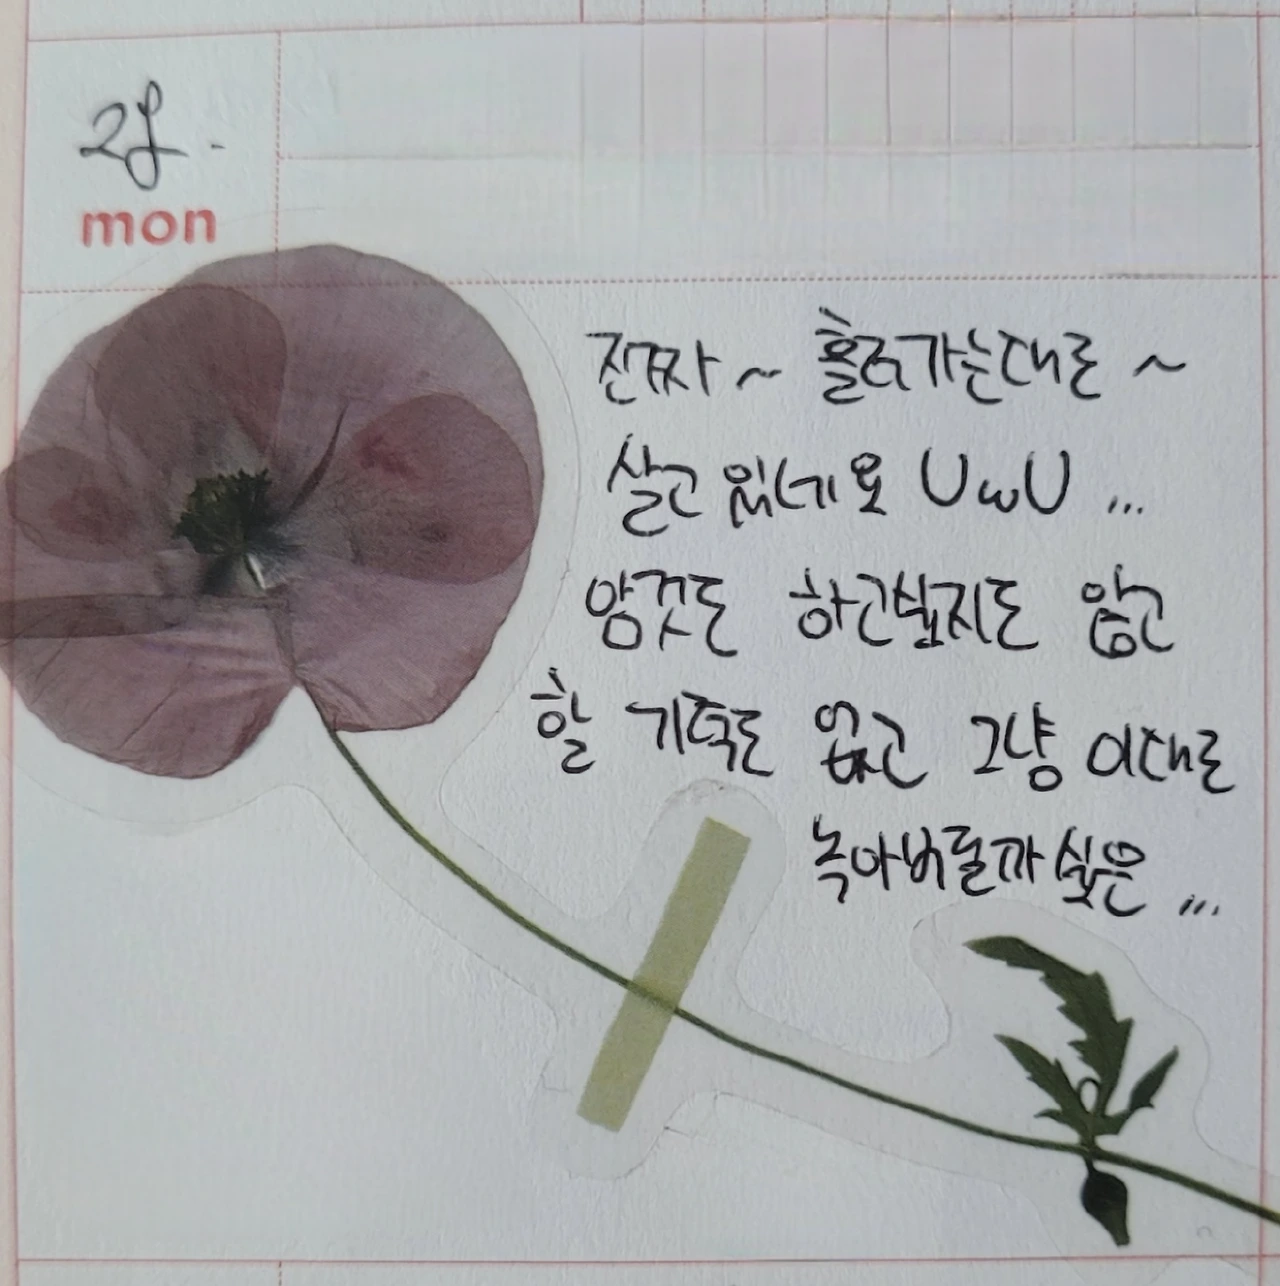 28.
mon
진짜~ 흘러가는대로~
살고 있네요 UωU ...
암것도 하고싶지도 않고
할 기력도 없고 그냥 이대로
녹아버릴까 싶은 ...